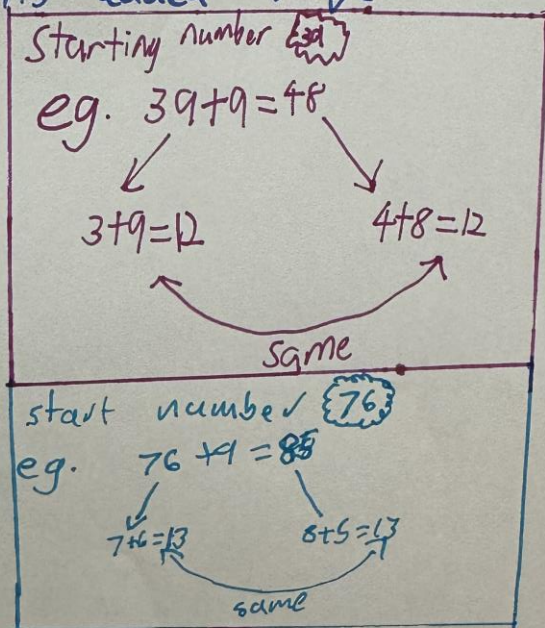 Starting number 39
eg. 39+9=48
3+9=12 4+8=12
same
start number 76
eg. 76+9=85
7+6=13 8+5=13
same